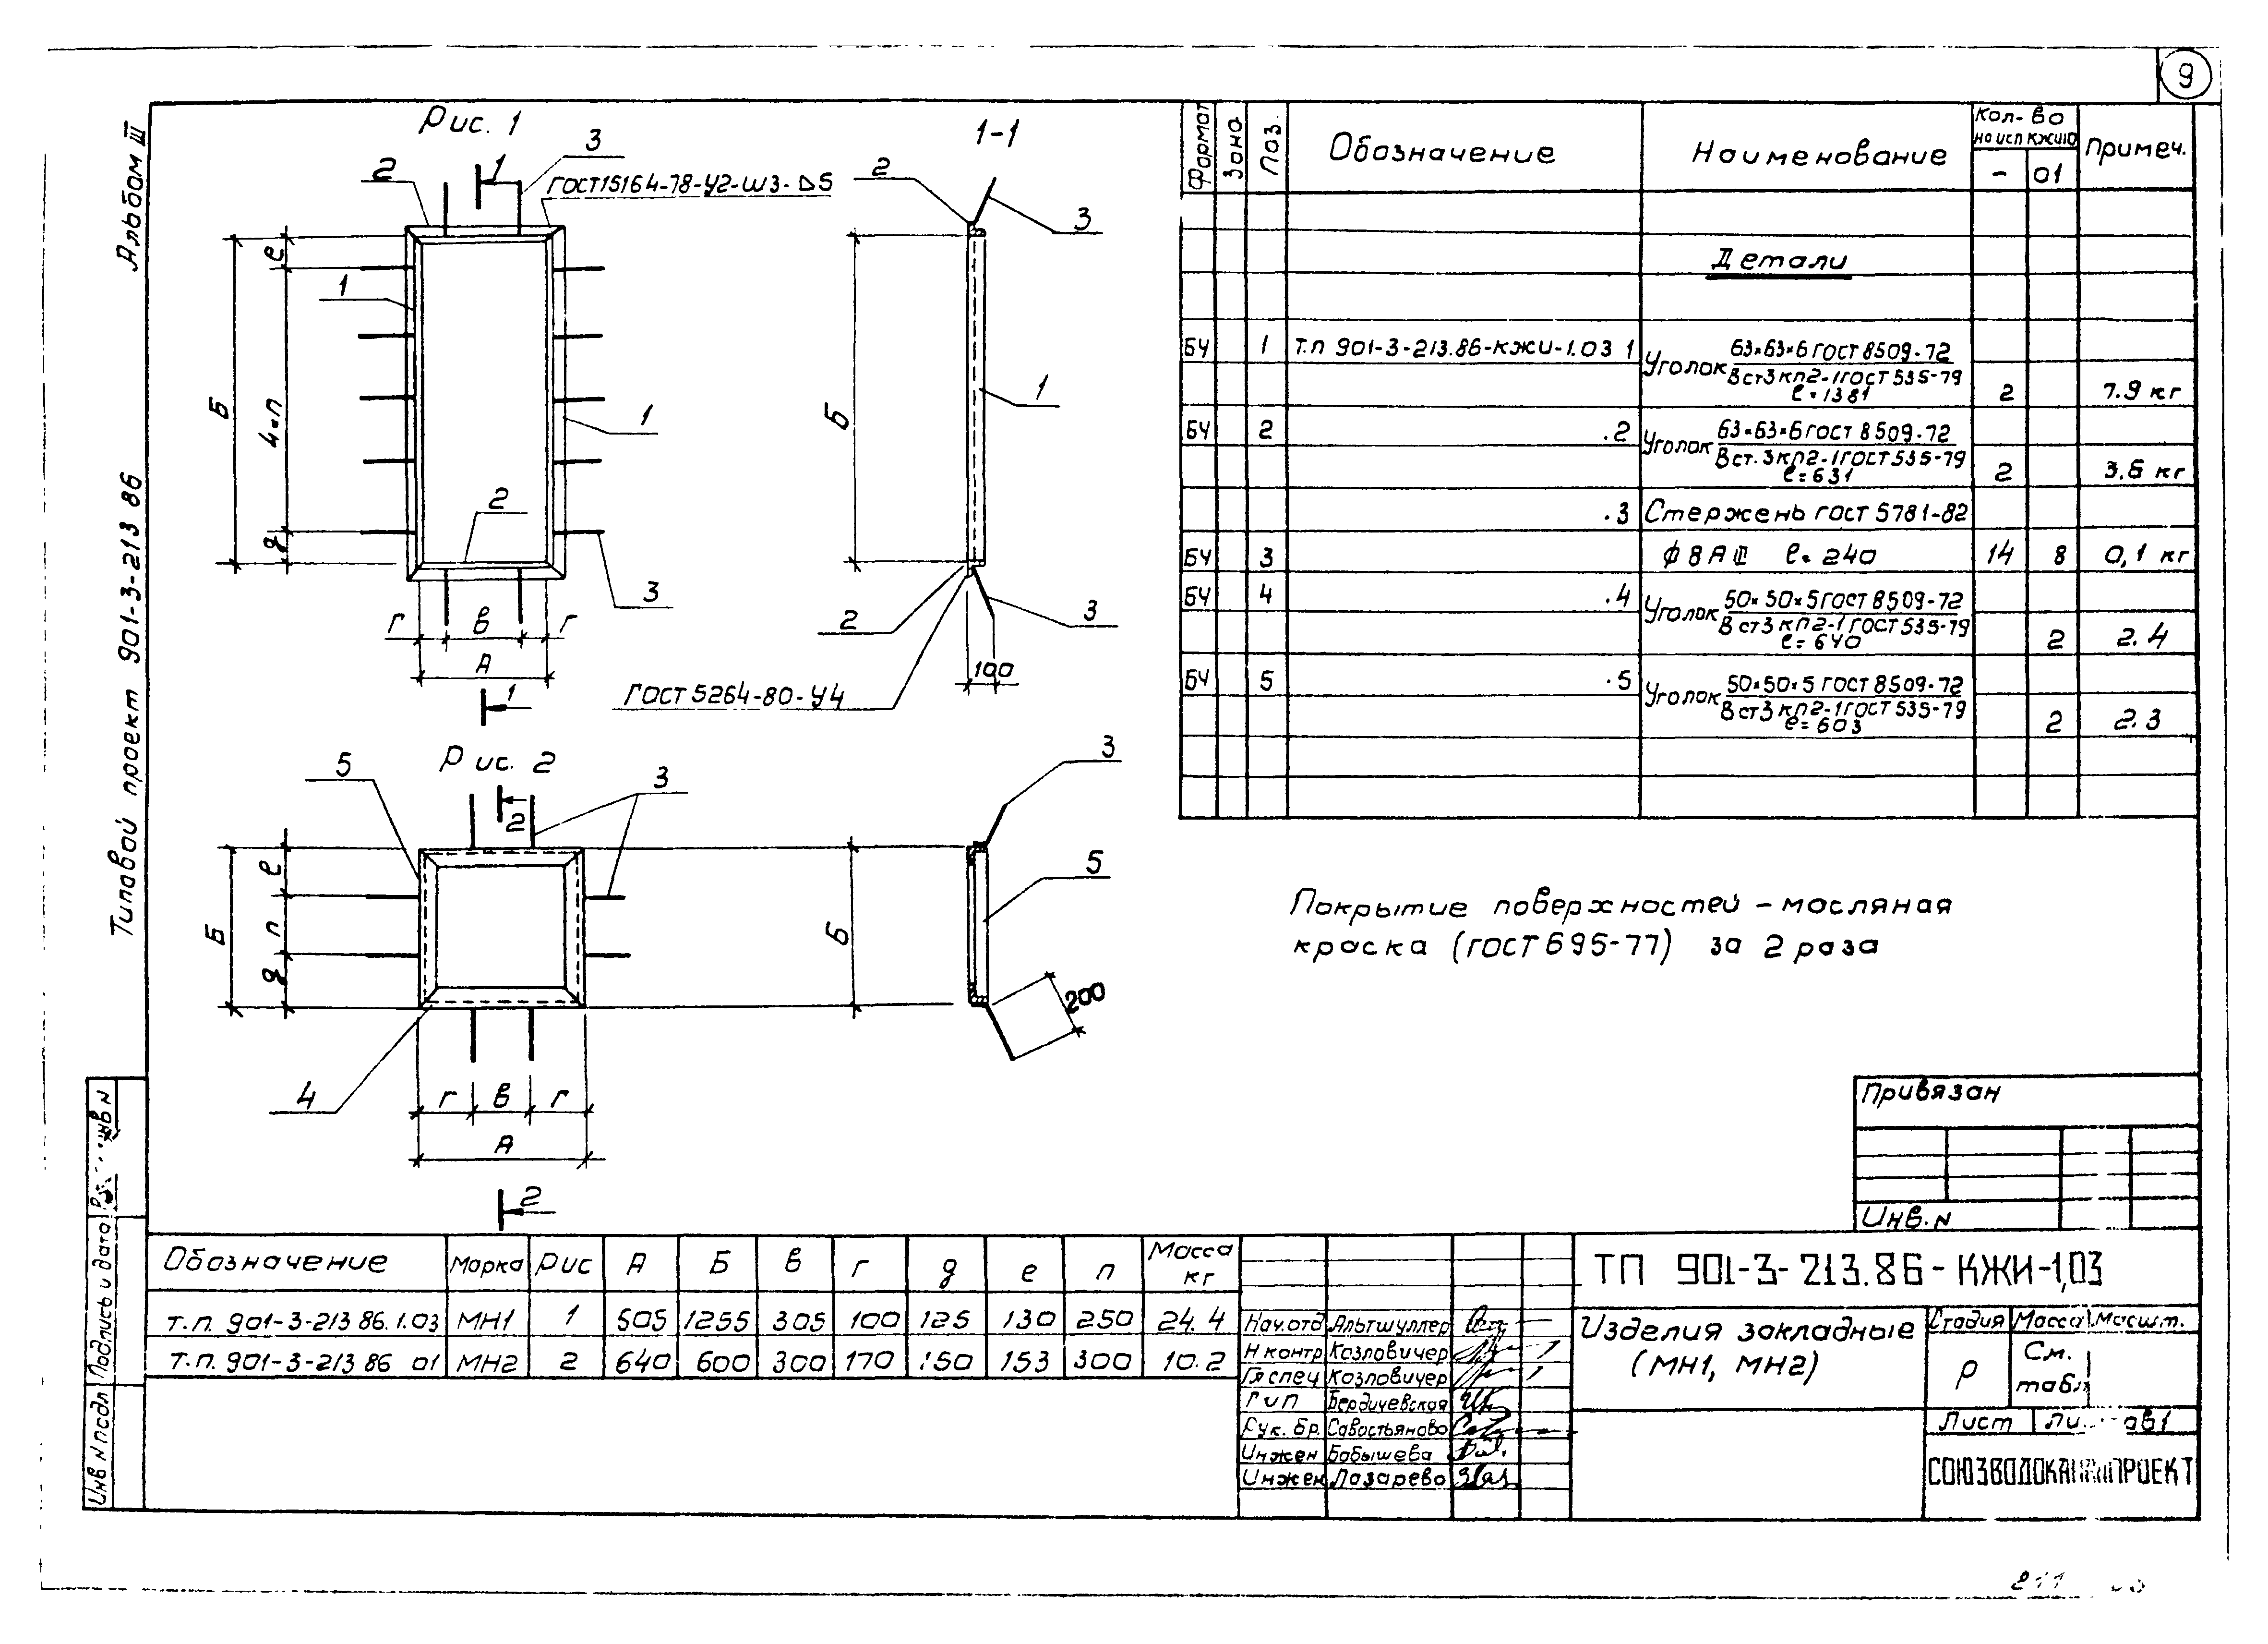 9
Альбом III
Типовой проект 901-3-213 86
Рис. 1
1
3
2
ГОСТ15164-78-У2-Ш3-Δ5
е
1
Б
4×п
1
2
д
3
г в г
А
1
1-1
2
3
Б
1
2
3
100
ГОСТ 5264-80-У4
Рис. 2
5
3
2
е
Б
п
д
4
г в г
А
2
3
Б
5
200
Формат Зона Поз. Обозначение Наименование Кол-во на исп КЖИ1.0 Примеч.
- 01
Детали
БЧ 1 Т.п 901-3-213.86-КЖИ-1.03 1 Уголок 63×63×6 ГОСТ 8509-72
Вст3 кп2-1 ГОСТ 535-79
ℓ=1381 2 7.9 кг
БЧ 2 .2 Уголок 63×63×6 ГОСТ 8509-72
Вст.3кп2-1ГОСТ 535-79
ℓ=631 2 3.6 кг
.3 Стержень ГОСТ 5781-82
БЧ 3 Ф 8 А III ℓ=240 14 8 0,1 кг
БЧ 4 .4 Уголок 50×50×5 ГОСТ 8509-72
Вст3 кп2-1 ГОСТ 535-79
ℓ=640 2 2.4
БЧ 5 .5 Уголок 50×50×5 ГОСТ 8509-72
Вст3 кп2-1 ГОСТ 535-79
ℓ=603 2 2.3
Покрытие поверхностей - масляная
краска (ГОСТ 695-77) за 2 раза
Привязан
Инв. N
Обозначение Марка Рис А Б в г д е п Масса кг
т.п. 901-3-213 86.1.03 МН1 1 505 1255 305 100 125 130 250 24.4
т.п. 901-3-213 86 01 МН2 2 640 600 300 170 150 153 300 10.2
Нач.отд Альтшуллер
Н контр Козловичер
Гл спец Козловичер
ГиП Бердичевская
Рук. бр. Савостьянова
Инжен Бабышева
Инжен Лазарева
ТП 901-3-213.86-КЖИ-1,03
Изделия закладные
(МН1, МН2)
Стадия Масса Масшт.
Р См. табл
Лист
СОЮЗВОДОКАНАЛПРОЕКТ
Инв N подл Подпись и дата инв N